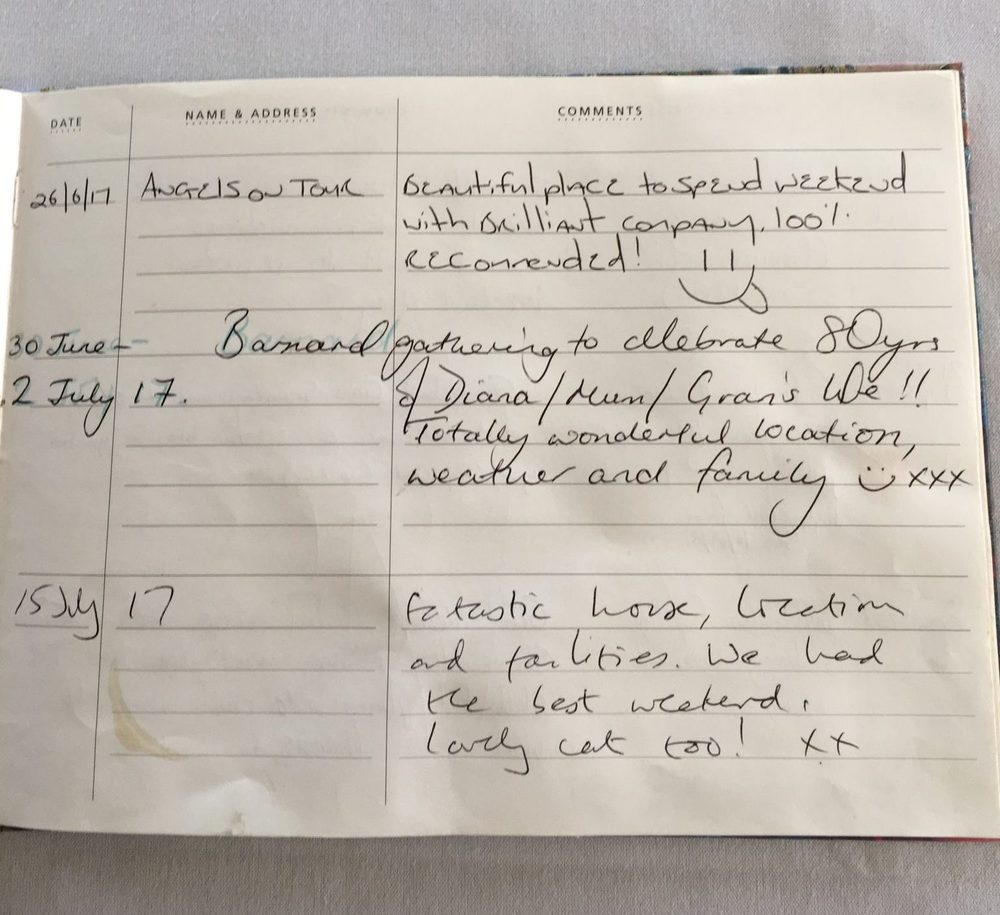 DATE NAME & ADDRESS COMMENTS
26/6/17 ANGELS ON TOUR Beautiful place to spend weekend
with brilliant company. 100%
recommended!
30 June - Barnard gathering to celebrate 80yrs
2 July 17. of Diana/Mum/Gran's life!!
Totally wonderful location,
weather and family xxx
15 July 17 Fatastic house, location
and facilities. We had
the best weekend.
Lovely cat too! xx